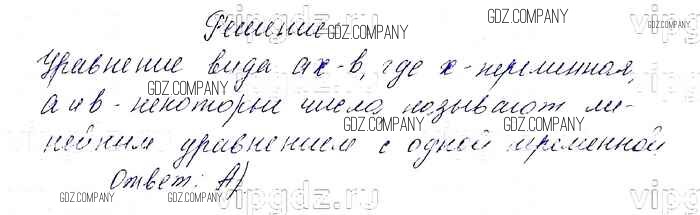 Решение.
Уравнение вида ах-в, где х-переменная,
а и в - некоторые числа, называют ли-
нейным уравнением с одной переменной
Ответ: А)
GDZ.COMPANY
GDZ.COMPANY
GDZ.COMPANY
GDZ.COMPANY
GDZ.COMPANY
GDZ.COMPANY
GDZ.COMPANY
GDZ.COMPANY
vipgdz.ru
vipgdz.ru